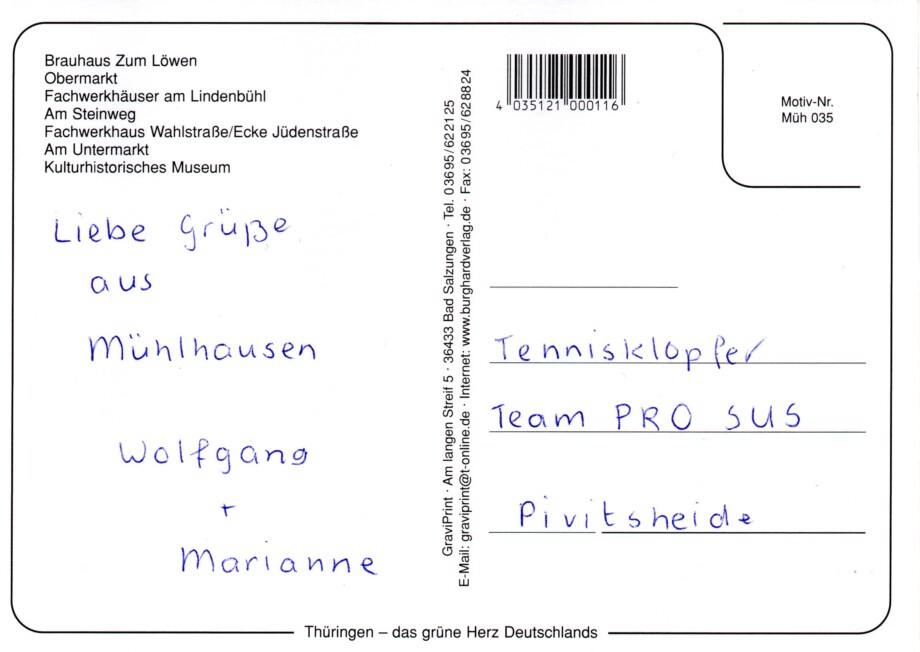 Brauhaus Zum Löwen
Obermarkt
Fachwerkhäuser am Lindenbühl
Am Steinweg
Fachwerkhaus Wahlstraße/Ecke Jüdenstraße
Am Untermarkt
Kulturhistorisches Museum
Liebe Grüße
aus
Mühlhausen
Wolfgang
+
Marianne
GraviPrint · Am langen Streif 5 · 36433 Bad Salzungen · Tel. 03695/622125
E-Mail: graviprint@t-online.de · Internet: www.burghardverlag.de · Fax: 03695/628824
4 035121 000116
Motiv-Nr.
Müh 035
Tennisklopfer
Team PRO SUS
Pivitsheide
Thüringen – das grüne Herz Deutschlands